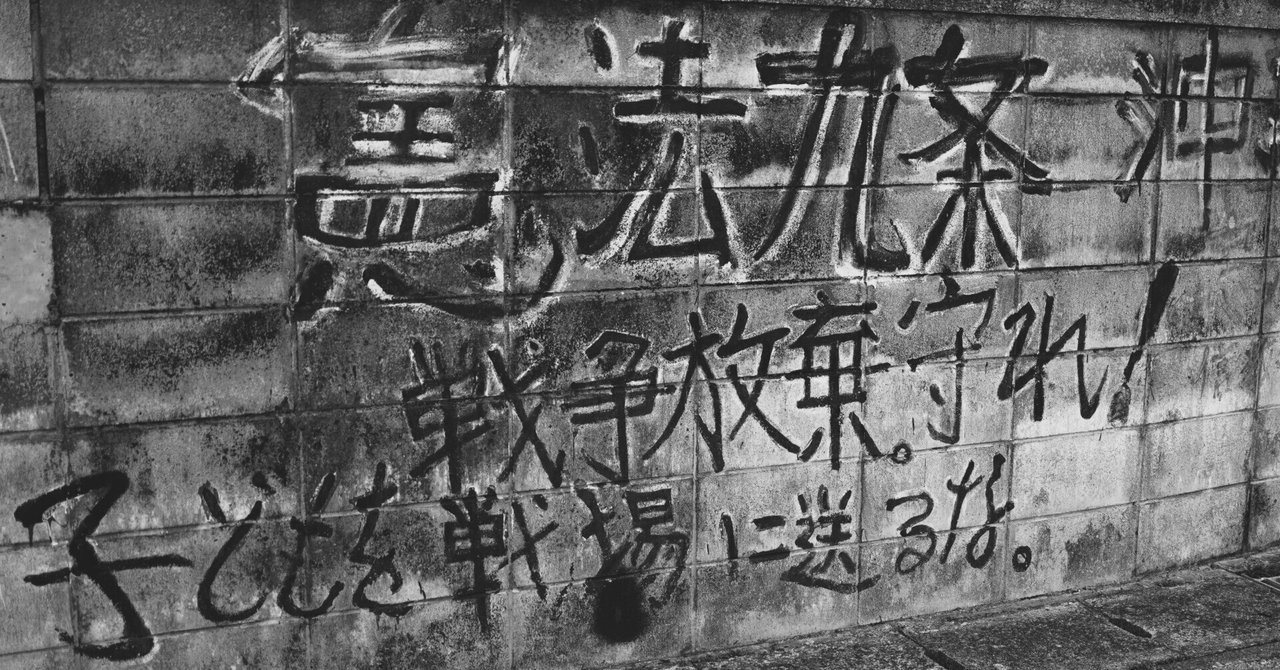 憲法九条 沖
戦争放棄。守れ!
子どもを戦場に送るな。